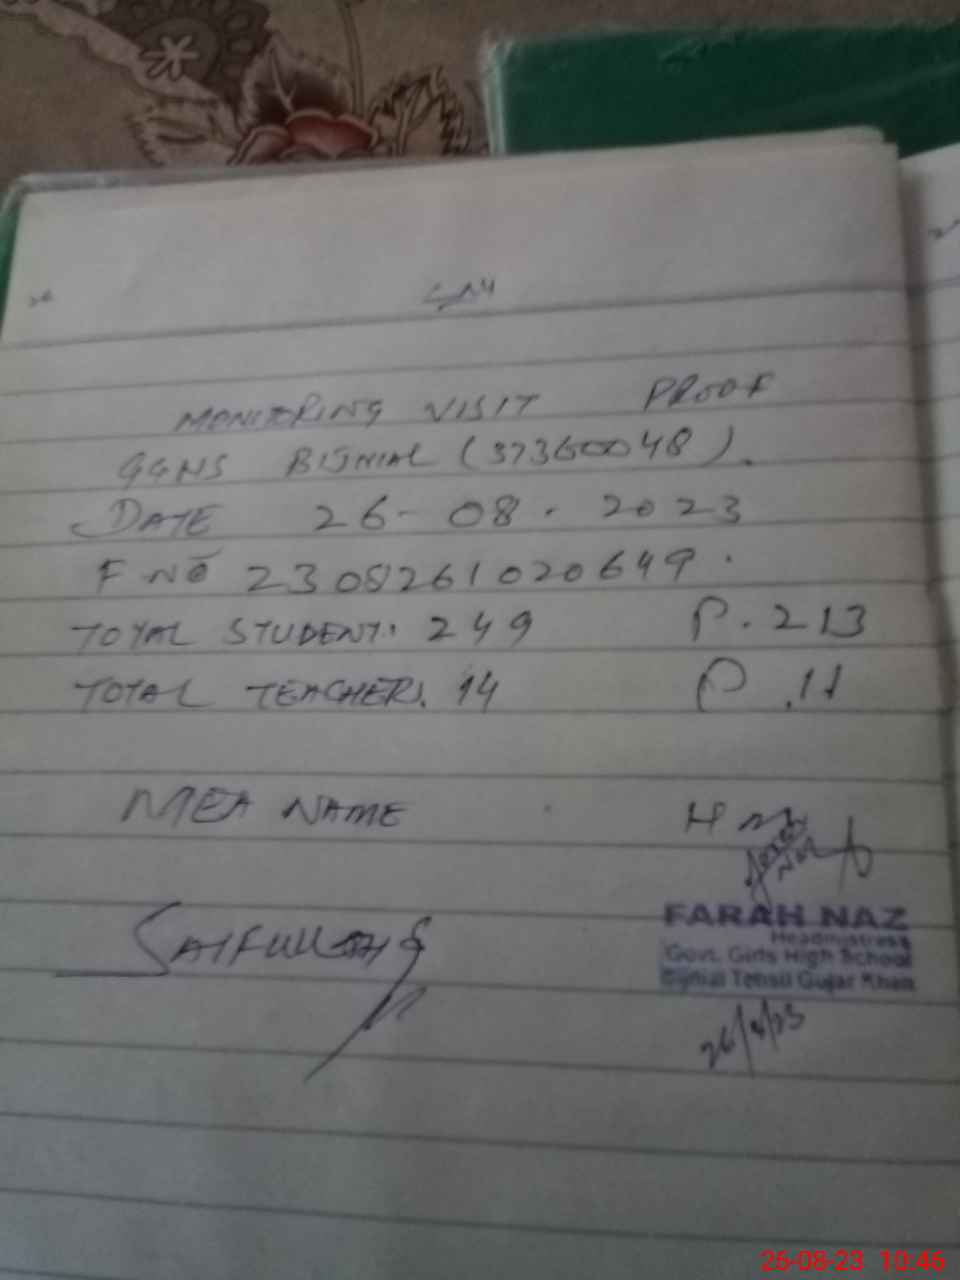 MONITORING VISIT PROOF
GGHS BIJNIAL (37360048).
DATE 26-08.2023
F NO 2308261020649.
TOTAL STUDENT. 249 P. 213
TOTAL TEACHER. 14 P. 11
MEA NAME H M
SAIFULLAH
FARAH NAZ
Headmistress
Govt. Girls High School
Bijnial Tehsil Gujar Khan
26/8/23
26-08-23 10:46